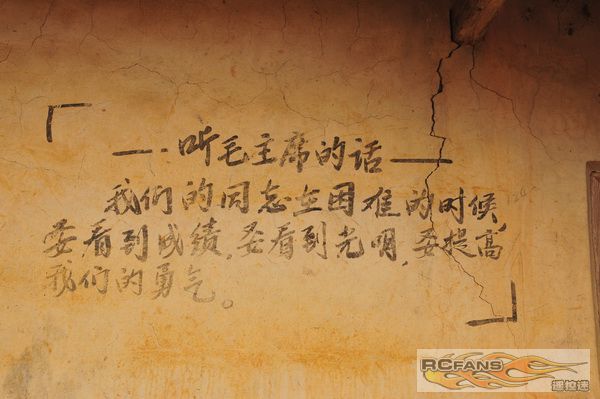 听毛主席的话
我们的同志在困难的时候,
要看到成绩,要看到光明,要提高
我们的勇气。
RCFANS
遥控迷